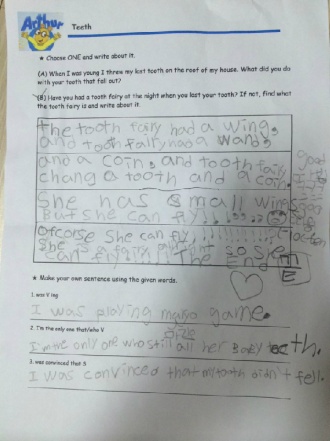 Arthur
Teeth
★ Choose ONE and write about it.
(A) When I was young I threw my lost tooth on the roof of my house. What did you do
with your teeth that fell out?
(B) Have you had a tooth fairy at the night when you lost your tooth? If not, find what
the tooth fairy is and write about it.
The tooth fairy had a wing.
and tooth fairy had a wand.
and a coin. and tooth fairy
chang a tooth and a coin.
She has small wing
But she can fly!!
ofcorse she can fly
She is a fairy
can fly!!! The End
E
★ Make your own sentence using the given words.
1. was V-ing
I was playing mario game.
2. I'm the only one that/who V
I'm the only one who still all her Baby teeth.
3. was convinced that S
I was convinced that my tooth didn't fell.